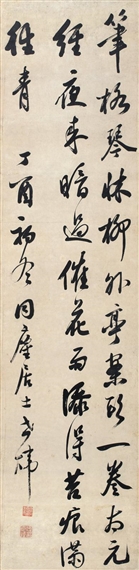 筆格琴牀柳外亭案頭一卷太元
經夜來暗過催花雨添得苔痕滿
徑青 丁酉初冬同居士